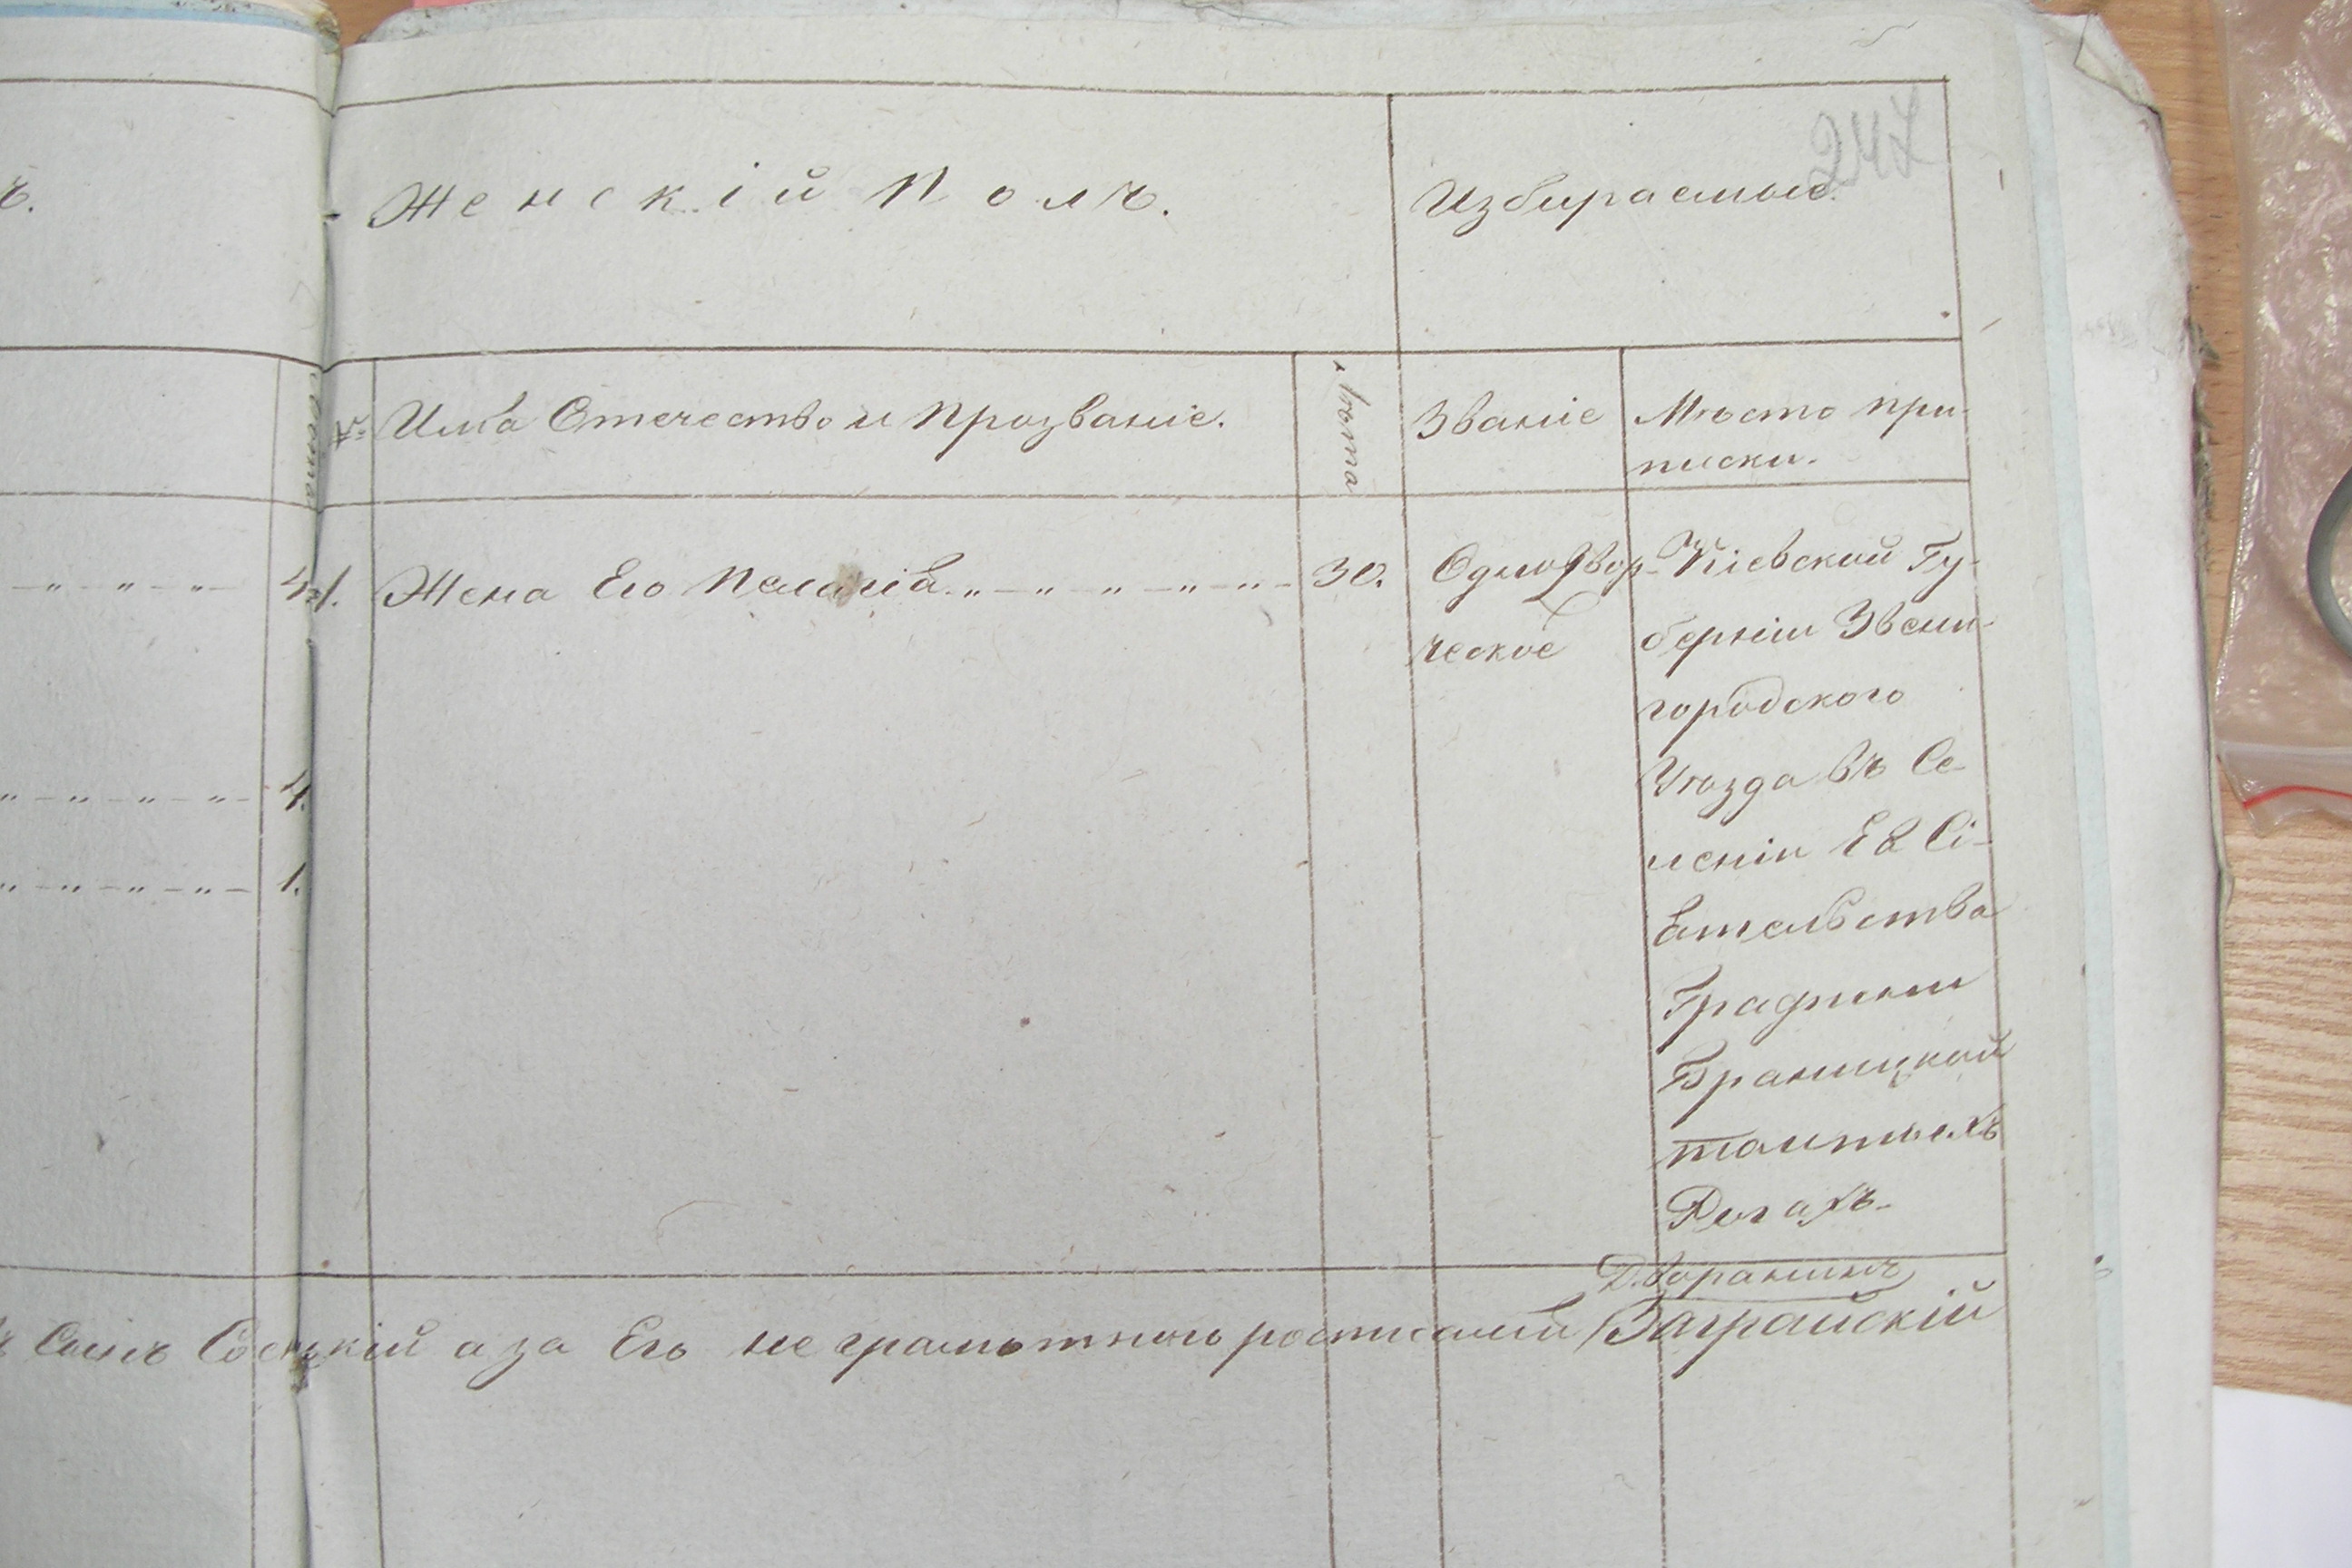 247
ъ.
Женскій Полъ.
Избираемые.
№: Имя Отечество и Прозваніе.
лѣта
Званіе
Мѣсто при-
писки.
1. Жена Его Пелагія 30.
Однодвор-
ческое
Кіевской Гу-
берніи Звени-
городского
Уѣзда въ Се-
леніи Ея Сі-
ятельства
Графини
Браницкой
Рогахъ.
4.
1.
Дворянинъ
Сынъ а за Его не грамотного росписался Заграйскій